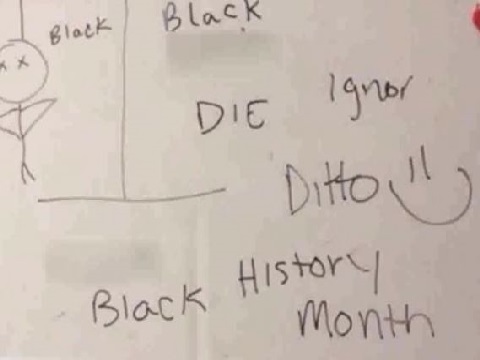 Black
Black
DIE
Ignor
Ditto
Black History
Month